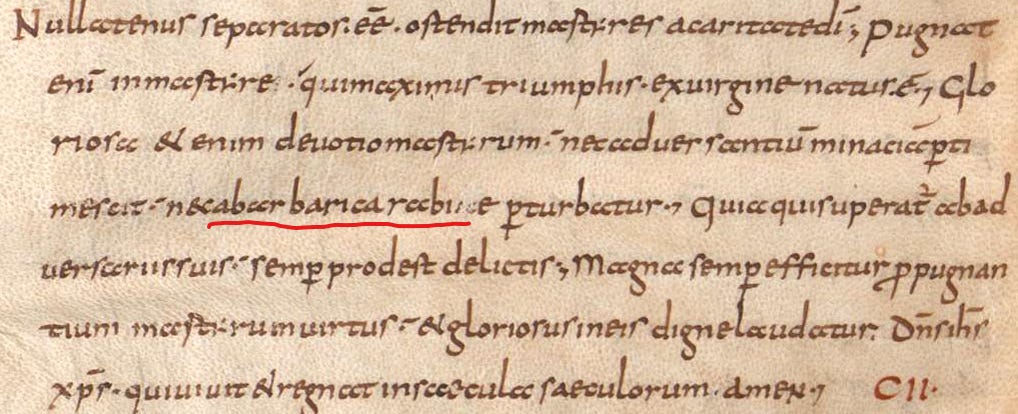 Nullatenus separatos·eē· ostendit martyres acaritatedī; Pugnat
enī inmartyre· quimaximis triumphis· exuirgine natus·ē; Glo
riosa & enim deuotiomartyrum· necaduersantiū minaciā ꝑti
mescit· necabarbarica rabie ꝑturbatur; Quia quisuperat̄ abad
uersariissuis· semꝑ prodest delictis; Magna semꝑ efficitur ꝓpugnan
tium martyrumuirtus· &gloriosusineis dignelaudatur· Dn̄s ih̄s
xp̄s· quiuiuit &regnat insaecula saeculorum· amen; CII·